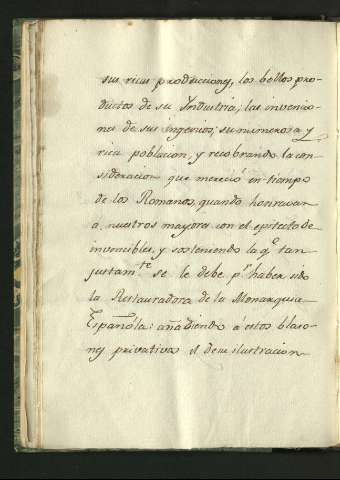 sus ricas producciones, los bellos pro-
ductos de su Industria; las invencio-
nes de sus ingenios; su numerosa y
rica poblacion, y recobrando la con-
sideracion que mereció en tiempo
de los Romanos, quando honravan
á nuestros mayores con el epitecto de
invencibles, y sosteniendo la qe. tan
justamte. se le debe pr. haber sido
la Restauradora de la Monarquia
Española: añadiendo á estos blaso-
nes privativos el de su ilustracion